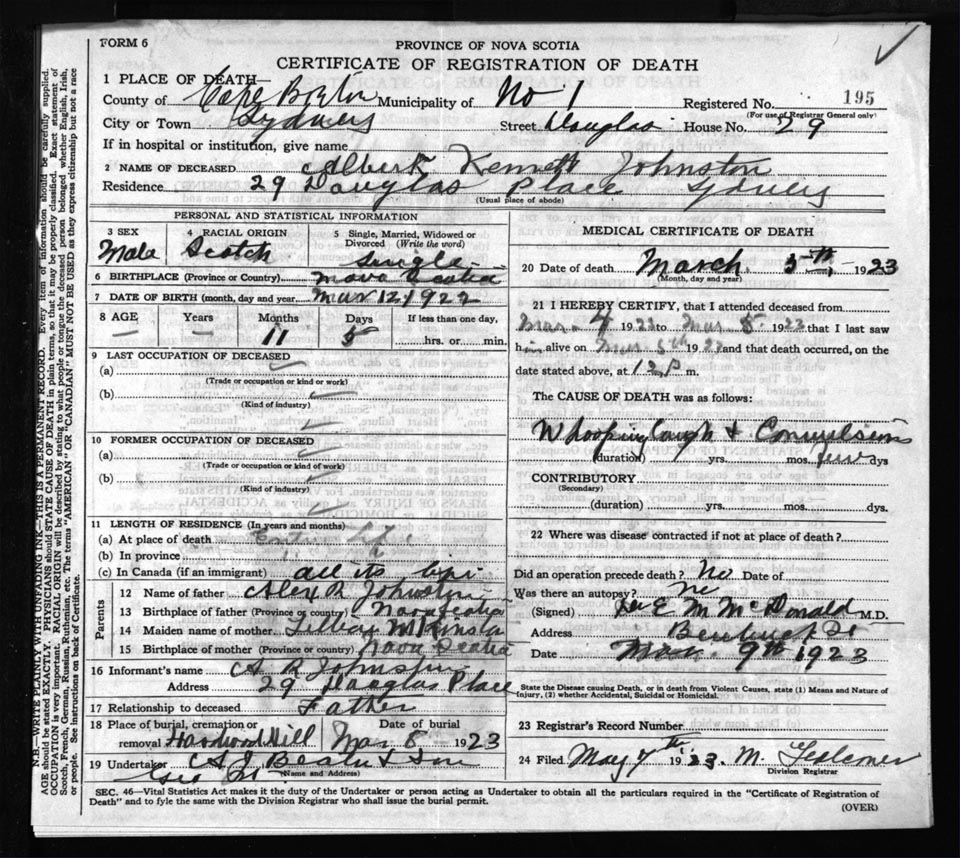 FORM 6
PROVINCE OF NOVA SCOTIA
CERTIFICATE OF REGISTRATION OF DEATH
1 PLACE OF DEATH—
County of Cape Breton Municipality of No 1 Registered No. 195
(For use of Registrar General only)
City or Town Sydney Street Douglas House No. 29
If in hospital or institution, give name
2 NAME OF DECEASED Albert Kenneth Johnston
Residence 29 Douglas Place Sydney
(Usual place of abode)
PERSONAL AND STATISTICAL INFORMATION
3 SEX 4 RACIAL ORIGIN 5 Single, Married, Widowed or Divorced (Write the word)
Male Scotch Single
6 BIRTHPLACE (Province or Country) Nova Scotia
7 DATE OF BIRTH (month, day and year) Mar 12, 1922
8 AGE Years Months Days If less than one day,
— 11 5 hrs. or min.
9 LAST OCCUPATION OF DECEASED
(a)
(Trade or occupation or kind or work)
(b)
(Kind of industry)
10 FORMER OCCUPATION OF DECEASED
(a)
(Trade or occupation or kind of work)
(b)
(Kind of industry)
11 LENGTH OF RESIDENCE (In years and months)
(a) At place of death Entire Life
(b) In province " "
(c) In Canada (if an immigrant) all its
Parents
12 Name of father Alex R Johnston
13 Birthplace of father (Province or country) Nova Scotia
14 Maiden name of mother
15 Birthplace of mother (Province or country) Nova Scotia
16 Informant's name A R Johnston
Address 29 Douglas Place
17 Relationship to deceased Father
18 Place of burial, cremation or removal Hardwood Hill Date of burial Mar 8 1923
19 Undertaker A J Beaton & Son
(Name and Address)
Geo St.
MEDICAL CERTIFICATE OF DEATH
20 Date of death March 5th, 1923
(Month, day and year)
21 I HEREBY CERTIFY, that I attended deceased from
Mar. 4 1923 to Mar 5 1923 that I last saw
him alive on Mar 5th 1923 and that death occurred, on the
date stated above, at 12 P m.
The CAUSE OF DEATH was as follows:
Whooping Cough & Convulsions
(duration) yrs. mos. few dys
CONTRIBUTORY
(Secondary)
(duration) yrs. mos. dys.
22 Where was disease contracted if not at place of death?
Did an operation precede death? No Date of
Was there an autopsy? No
(Signed) E M McDonald M.D.
Address
Date Mar. 9th 1923
State the Disease causing Death, or in death from Violent Causes, state (1) Means and Nature of
Injury, (2) whether Accidental, Suicidal or Homicidal.
23 Registrar's Record Number
24 Filed May 7th 1923. M.
Division Registrar
SEC. 46—Vital Statistics Act makes it the duty of the Undertaker or person acting as Undertaker to obtain all the particulars required in the "Certificate of Registration of
Death" and to fyle the same with the Division Registrar who shall issue the burial permit.
(OVER)
N.B.—WRITE PLAINLY WITH UNFADING INK—THIS IS A PERMANENT RECORD. Every item of information should be carefully supplied.
AGE should be stated EXACTLY. PHYSICIANS should STATE CAUSE OF DEATH in plain terms, so that it may be properly classified. Exact statement of
OCCUPATION is very important. RACIAL ORIGIN will be described by stating to what people or tongue the deceased person belonged whether English, Irish,
Scotch, French, German, Russian, Ruthenian, etc. The terms "AMERICAN" OR "CANADIAN" MUST NOT BE USED as they express citizenship but not a race
or people. See instructions on back of Certificate.